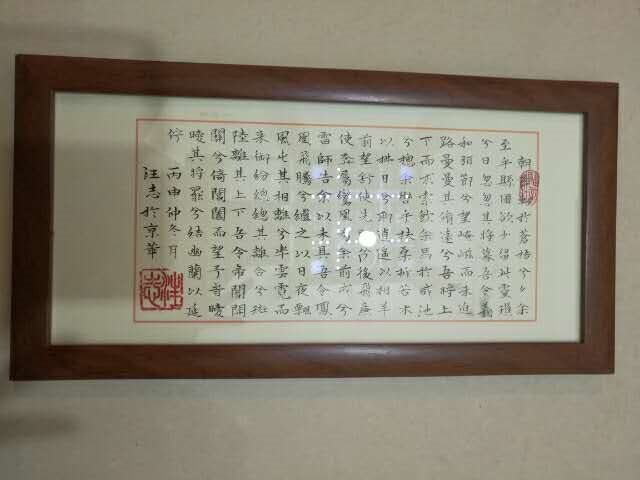 朝於蒼梧兮夕余
至乎縣圃欲少留此靈瑣
兮日忽忽其將暮吾令羲
和弭節兮望崦嵫而未迫
路曼曼其脩遠兮吾將上
下而求索飲余馬於咸池
兮總余轡乎扶桑折若木
以拂日兮聊逍遙以相羊
前望舒使先兮後飛廉
使奔屬鸞凰余前戒兮
雷師告余以未具吾令鳳
凰飛騰兮繼之以日夜飄
風屯其相離兮率雲霓而
來御紛總總其離合兮斑
陸離其上下吾令帝閽開
關兮倚閶闔而望予時曖
曖其將罷兮結幽蘭以延
佇
丙申仲冬月
汪志於京華
汪志